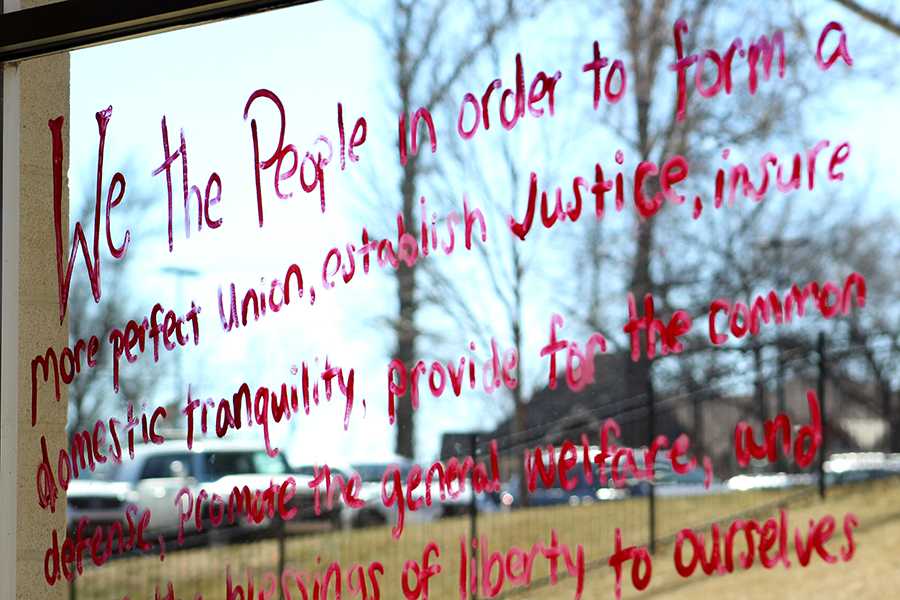 We the People in order to form a
more perfect Union, establish Justice, insure
domestic tranquility, provide for the common
defense, promote the general welfare, and
the blessings of liberty to ourselves